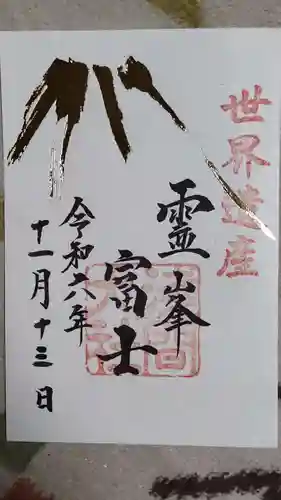 世界遺産
霊峯
富士
令和六年
十一月十三日